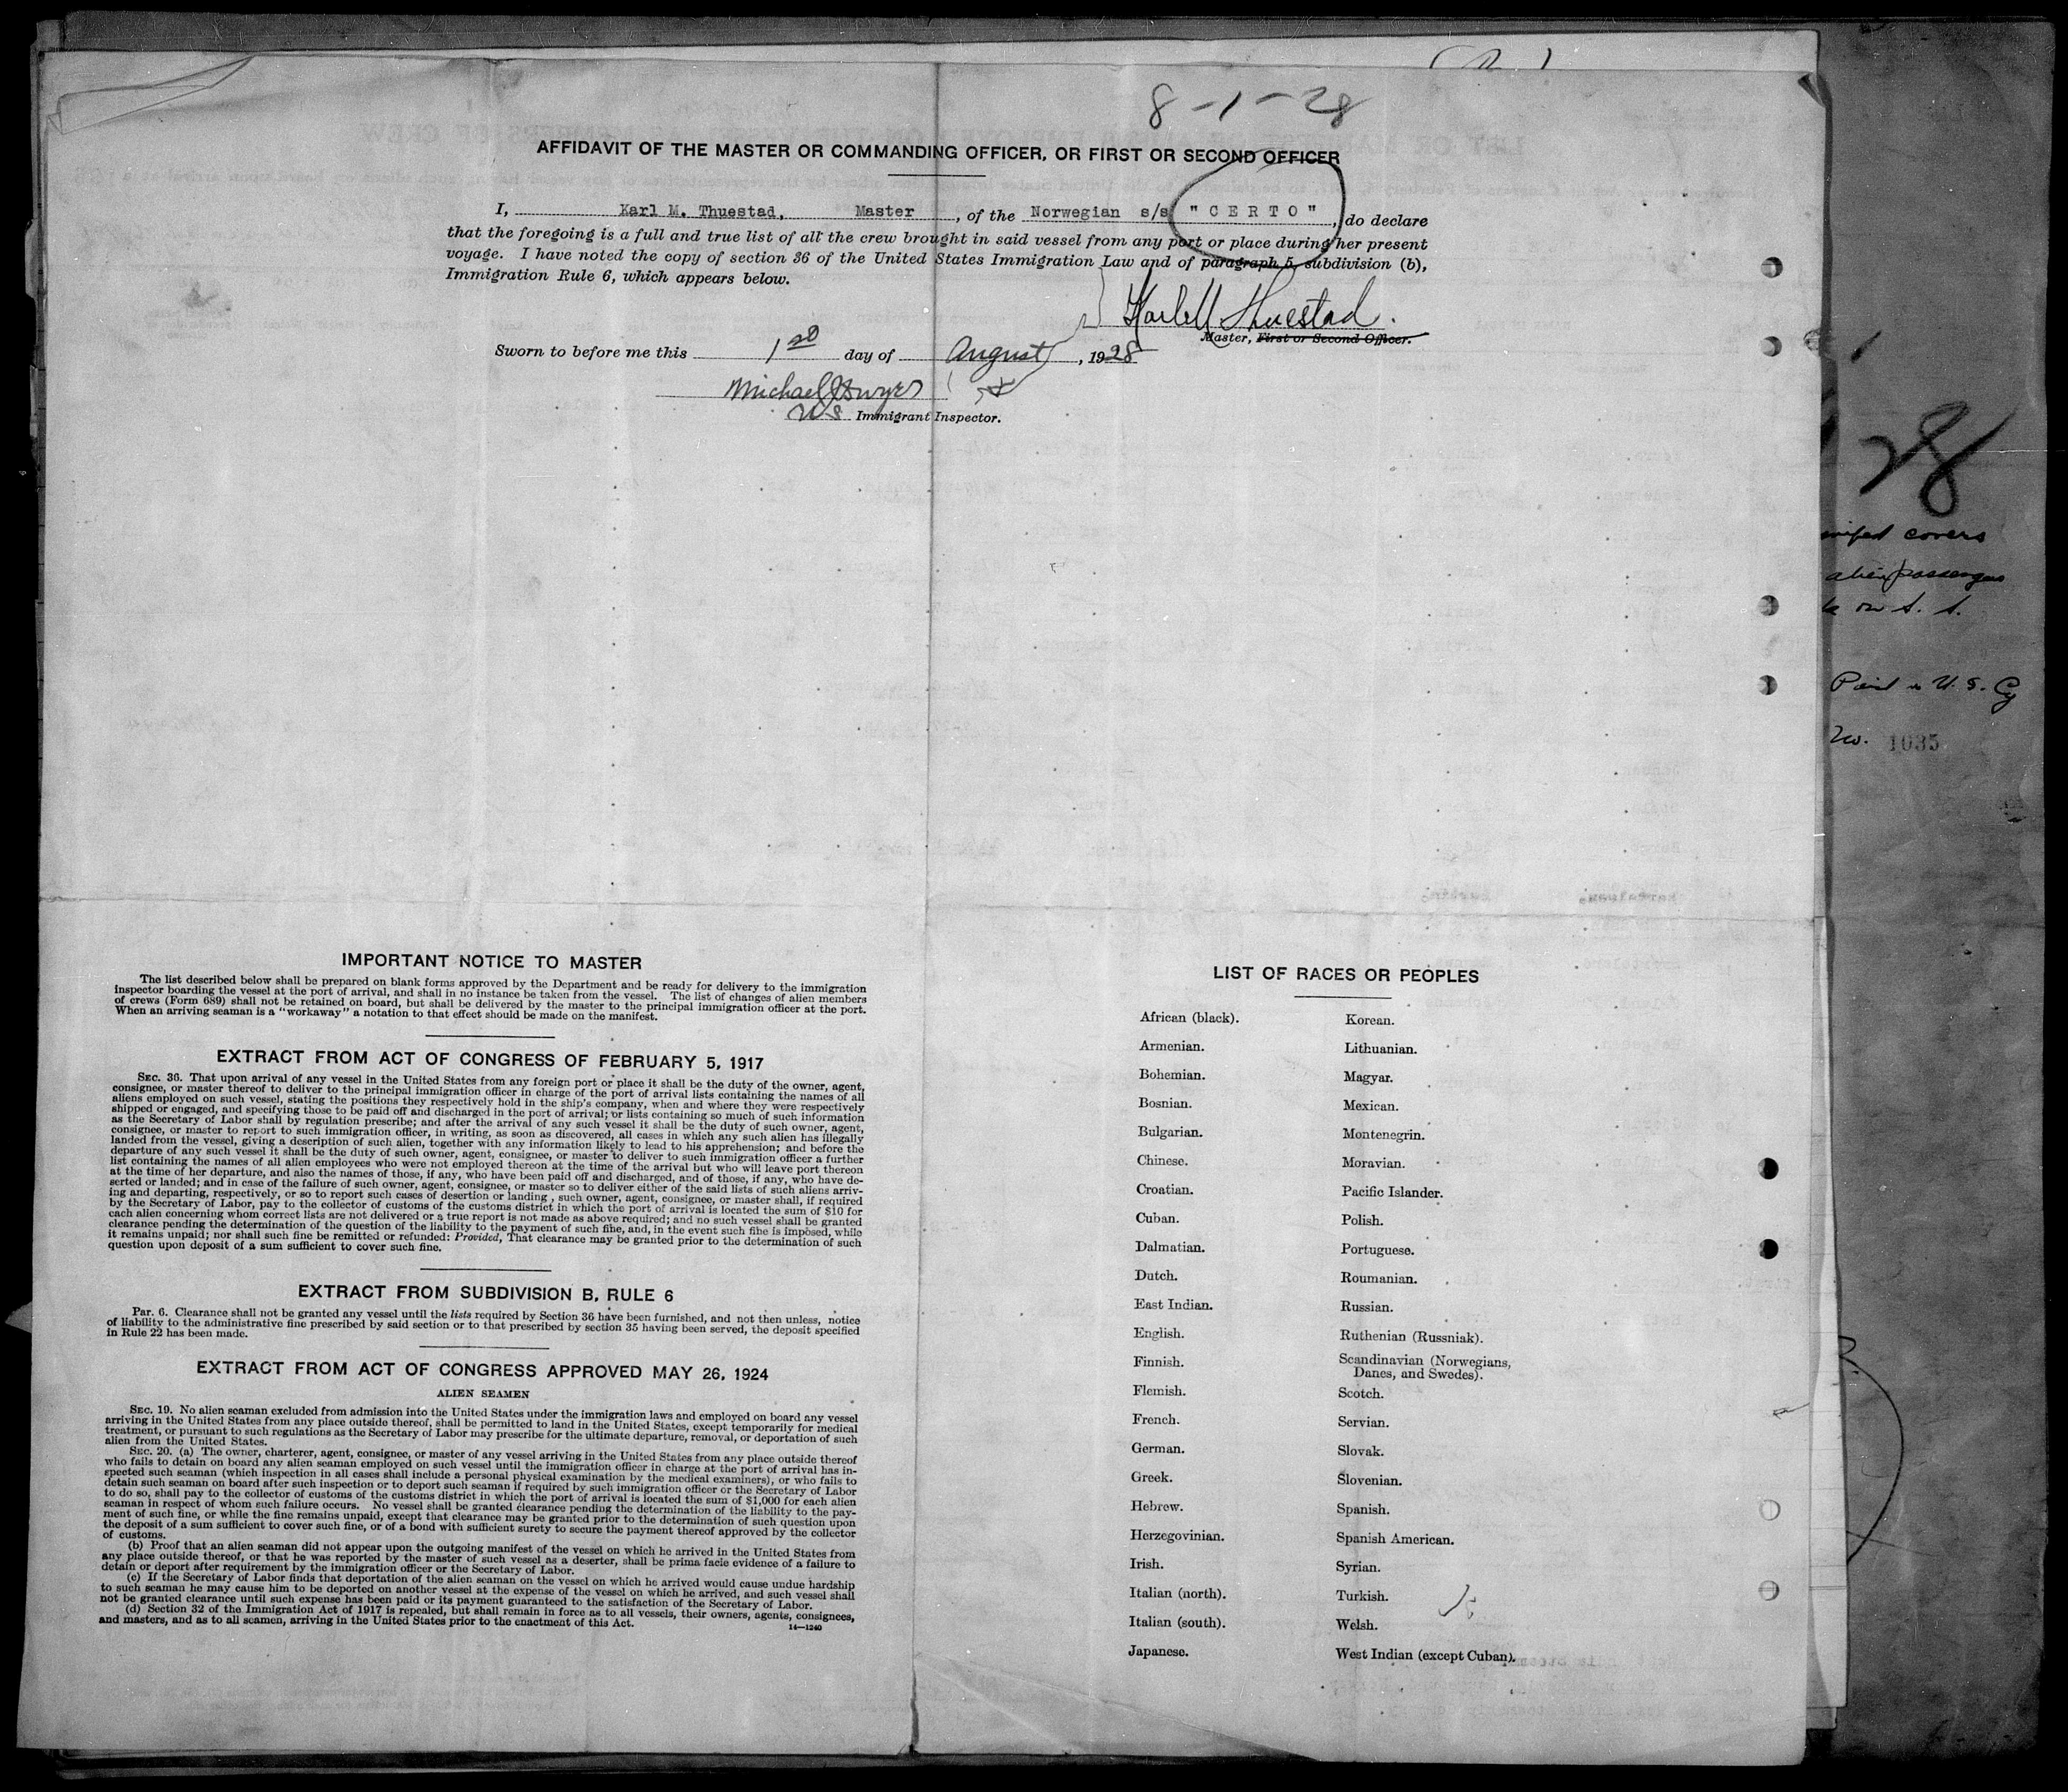 8-1-28
AFFIDAVIT OF THE MASTER OR COMMANDING OFFICER, OR FIRST OR SECOND OFFICER
I, Karl M. Thuestad, Master, of the Norwegian s/s "CERTO", do declare
that the foregoing is a full and true list of all the crew brought in said vessel from any port or place during her present
voyage. I have noted the copy of section 36 of the United States Immigration Law and of paragraph 5, subdivision (b),
Immigration Rule 6, which appears below.
Karl M Thuestad.
Master, First or Second Officer.
Sworn to before me this 1st day of August, 1928
Michael J Dwyer
US Immigrant Inspector.
28
covers
alien passengers
on S. S.
Paid in U. S. Cy
No. 1035
IMPORTANT NOTICE TO MASTER
The list described below shall be prepared on blank forms approved by the Department and be ready for delivery to the immigration
inspector boarding the vessel at the port of arrival, and shall in no instance be taken from the vessel. The list of changes of alien members
of crews (Form 689) shall not be retained on board, but shall be delivered by the master to the principal immigration officer at the port.
When an arriving seaman is a "workaway" a notation to that effect should be made on the manifest.
EXTRACT FROM ACT OF CONGRESS OF FEBRUARY 5, 1917
SEC. 36. That upon arrival of any vessel in the United States from any foreign port or place it shall be the duty of the owner, agent,
consignee, or master thereof to deliver to the principal immigration officer in charge of the port of arrival lists containing the names of all
aliens employed on such vessel, stating the positions they respectively hold in the ship's company, when and where they were respectively
shipped or engaged, and specifying those to be paid off and discharged in the port of arrival; or lists containing so much of such information
as the Secretary of Labor shall by regulation prescribe; and after the arrival of any such vessel it shall be the duty of such owner, agent,
consignee, or master to report to such immigration officer, in writing, as soon as discovered, all cases in which any such alien has illegally
landed from the vessel, giving a description of such alien, together with any information likely to lead to his apprehension; and before the
departure of any such vessel it shall be the duty of such owner, agent, consignee, or master to deliver to such immigration officer a further
list containing the names of all alien employees who were not employed thereon at the time of the arrival but who will leave port thereon
at the time of her departure, and also the names of those, if any, who have been paid off and discharged, and of those, if any, who have de-
serted or landed; and in case of the failure of such owner, agent, consignee, or master so to deliver either of the said lists of such aliens arriv-
ing and departing, respectively, or so to report such cases of desertion or landing, such owner, agent, consignee, or master shall, if required
by the Secretary of Labor, pay to the collector of customs of the customs district in which the port of arrival is located the sum of $10 for
each alien concerning whom correct lists are not delivered or a true report is not made as above required; and no such vessel shall be granted
clearance pending the determination of the question of the liability to the payment of such fine, and, in the event such fine is imposed, while
it remains unpaid; nor shall such fine be remitted or refunded: Provided, That clearance may be granted prior to the determination of such
question upon deposit of a sum sufficient to cover such fine.
EXTRACT FROM SUBDIVISION B, RULE 6
Par. 6. Clearance shall not be granted any vessel until the lists required by Section 36 have been furnished, and not then unless, notice
of liability to the administrative fine prescribed by said section or to that prescribed by section 35 having been served, the deposit specified
in Rule 22 has been made.
EXTRACT FROM ACT OF CONGRESS APPROVED MAY 26, 1924
ALIEN SEAMEN
SEC. 19. No alien seaman excluded from admission into the United States under the immigration laws and employed on board any vessel
arriving in the United States from any place outside thereof, shall be permitted to land in the United States, except temporarily for medical
treatment, or pursuant to such regulations as the Secretary of Labor may prescribe for the ultimate departure, removal, or deportation of such
alien from the United States.
SEC. 20. (a) The owner, charterer, agent, consignee, or master of any vessel arriving in the United States from any place outside thereof
who fails to detain on board any alien seaman employed on such vessel until the immigration officer in charge at the port of arrival has in-
spected such seaman (which inspection in all cases shall include a personal physical examination by the medical examiners), or who fails to
detain such seaman on board after such inspection or to deport such seaman if required by such immigration officer or the Secretary of Labor
to do so, shall pay to the collector of customs of the customs district in which the port of arrival is located the sum of $1,000 for each alien
seaman in respect of whom such failure occurs. No vessel shall be granted clearance pending the determination of the liability to the pay-
ment of such fine, or while the fine remains unpaid, except that clearance may be granted prior to the determination of such question upon
the deposit of a sum sufficient to cover such fine, or of a bond with sufficient surety to secure the payment thereof approved by the collector
of customs.
(b) Proof that an alien seaman did not appear upon the outgoing manifest of the vessel on which he arrived in the United States from
any place outside thereof, or that he was reported by the master of such vessel as a deserter, shall be prima facie evidence of a failure to
detain or deport after requirement by the immigration officer or the Secretary of Labor.
(c) If the Secretary of Labor finds that deportation of the alien seaman on the vessel on which he arrived would cause undue hardship
to such seaman he may cause him to be deported on another vessel at the expense of the vessel on which he arrived, and such vessel shall
not be granted clearance until such expense has been paid or its payment guaranteed to the satisfaction of the Secretary of Labor.
(d) Section 32 of the Immigration Act of 1917 is repealed, but shall remain in force as to all vessels, their owners, agents, consignees,
and masters, and as to all seamen, arriving in the United States prior to the enactment of this Act.
14—1240
LIST OF RACES OR PEOPLES
African (black).
Armenian.
Bohemian.
Bosnian.
Bulgarian.
Chinese.
Croatian.
Cuban.
Dalmatian.
Dutch.
East Indian.
English.
Finnish.
Flemish.
French.
German.
Greek.
Hebrew.
Herzegovinian.
Irish.
Italian (north).
Italian (south).
Japanese.
Korean.
Lithuanian.
Magyar.
Mexican.
Montenegrin.
Moravian.
Pacific Islander.
Polish.
Portuguese.
Roumanian.
Russian.
Ruthenian (Russniak).
Scandinavian (Norwegians,
Danes, and Swedes).
Scotch.
Servian.
Slovak.
Slovenian.
Spanish.
Spanish American.
Syrian.
Turkish.
Welsh.
West Indian (except Cuban).